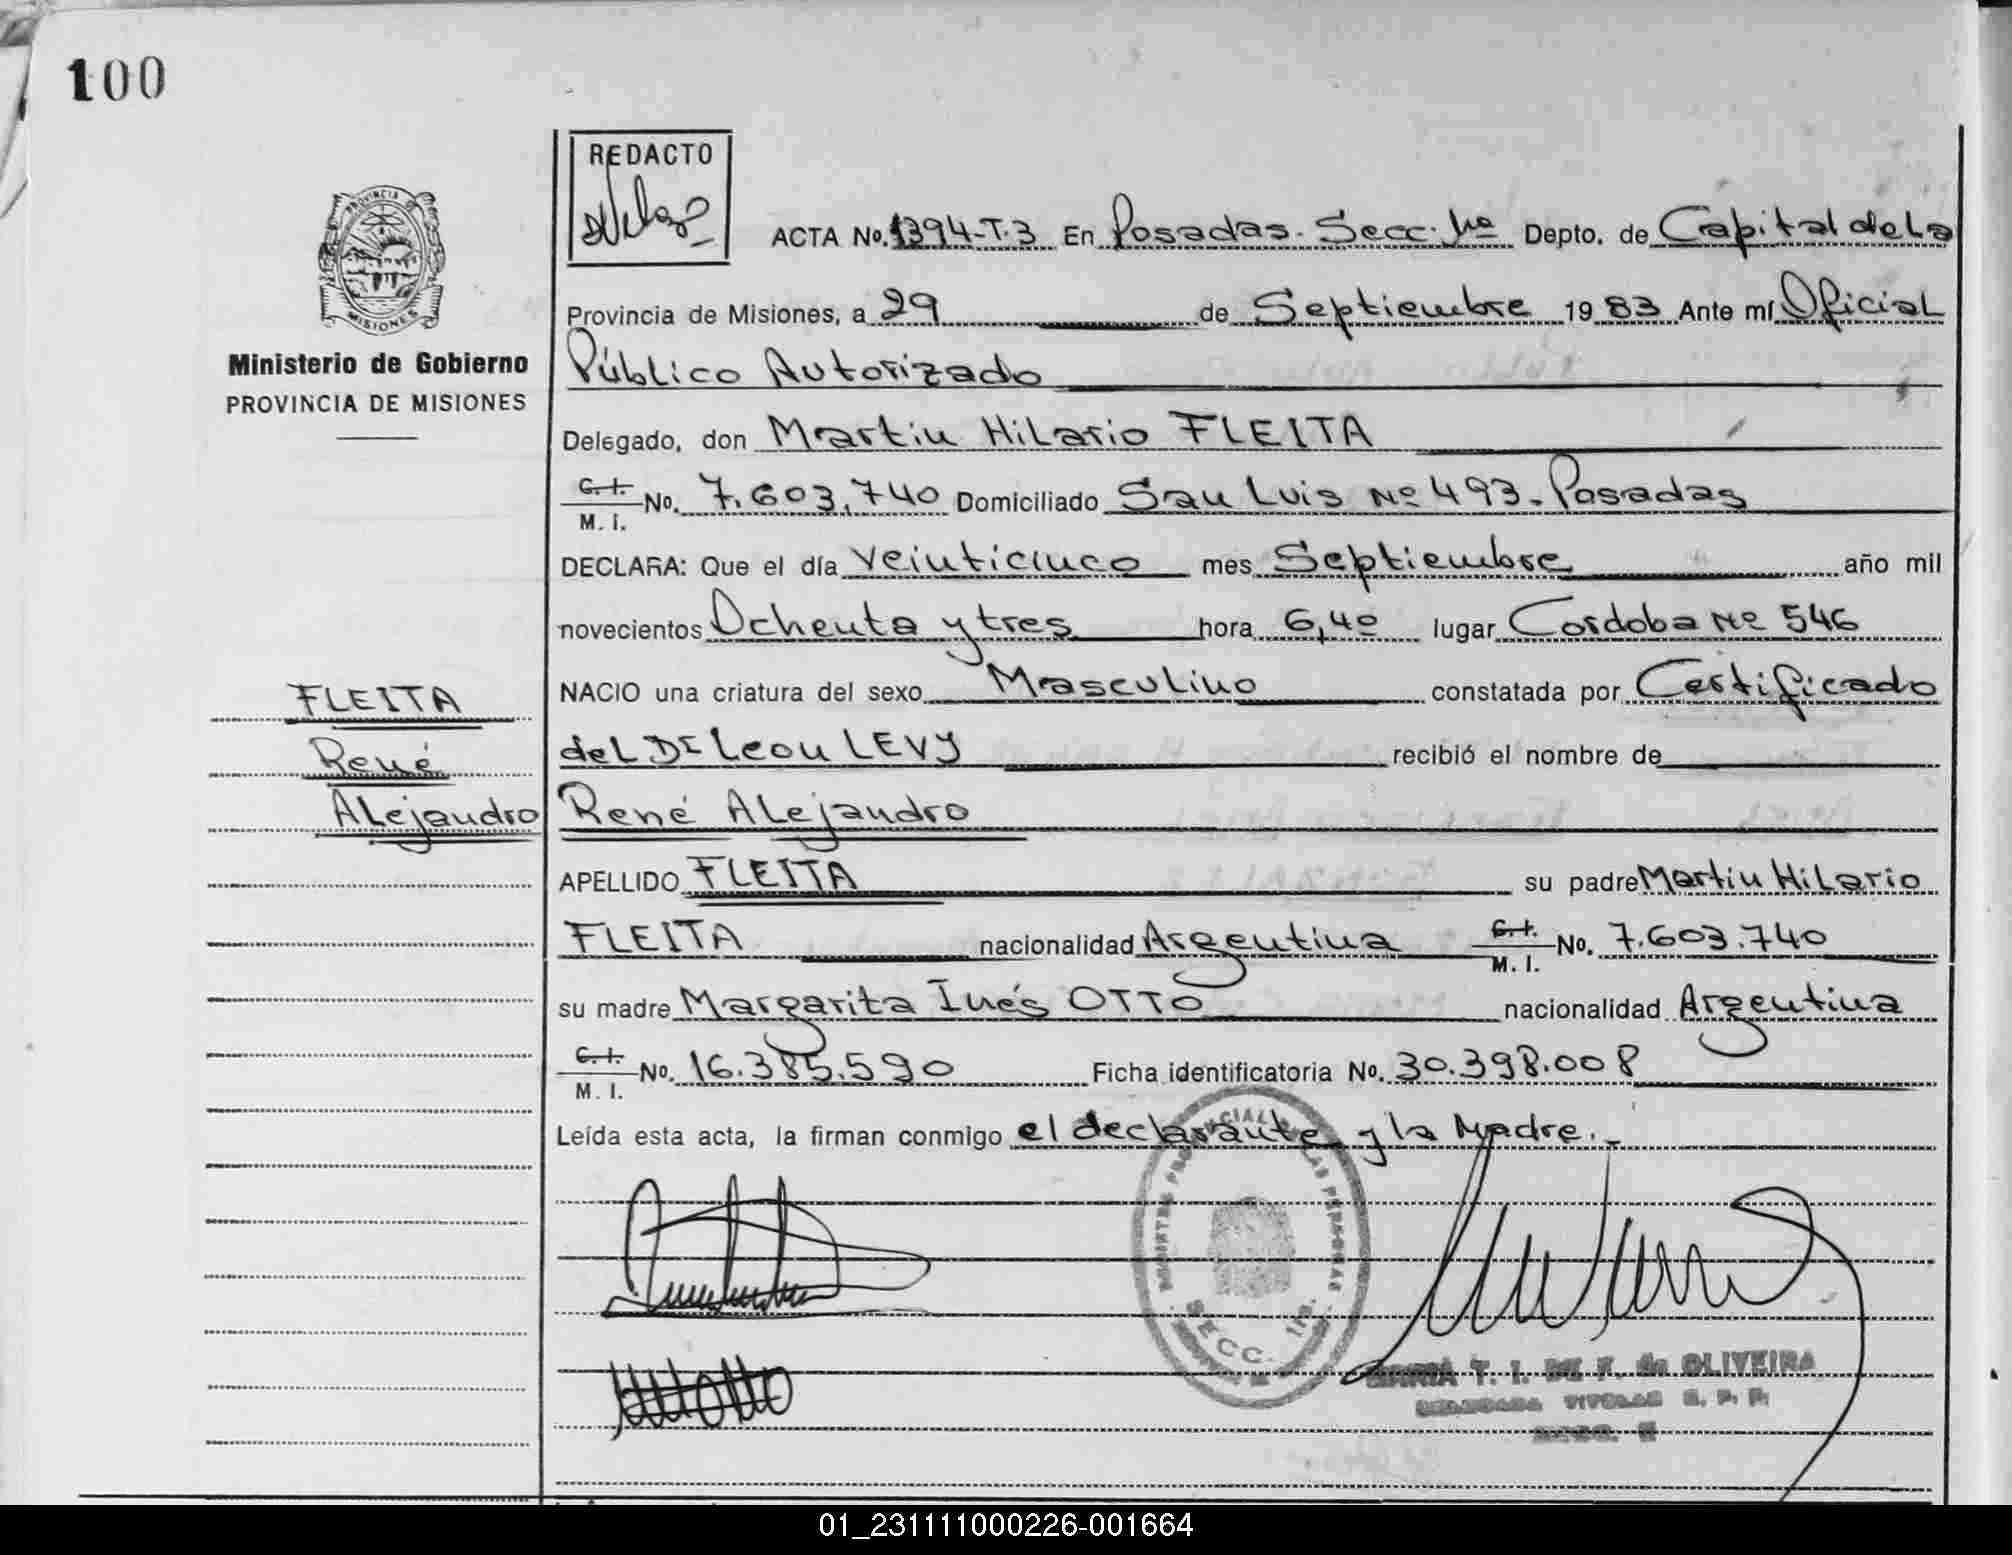 100
REDACTO
PROVINCIA DE
MISIONES
Ministerio de Gobierno
PROVINCIA DE MISIONES
ACTA No. 1394-T.3 En Posadas. Secc. 1ra Depto. de Capital de La
Provincia de Misiones, a 29 de Septiembre 19 83 Ante mí Oficial
Público Autorizado
Delegado, don Martin Hilario FLEITA
C. I. M. I. No. 7.603.740 Domiciliado San Luis Nº 493. Posadas
DECLARA: Que el día Veinticinco mes Septiembre año mil
novecientos Ochenta y tres hora 6,40 lugar Cordoba Nº 546
FLEITA
René
Alejandro
NACIO una criatura del sexo Masculino constatada por Certificado
del Dr Leon LEVY recibió el nombre de
René Alejandro
APELLIDO FLEITA su padre Martin Hilario
FLEITA nacionalidad Argentina C. I. M. I. No. 7.603.740
su madre Margarita Inés OTTO nacionalidad Argentina
C. I. M. I. No. 16.385.590 Ficha identificatoria No. 30.398.008
Leída esta acta, la firman conmigo el declarante y la Madre.
REGISTRO PROVINCIAL DE LAS PERSONAS
SECC. 1ra.
MARIA T. I. DE F. de OLIVEIRA
DELEGADA TITULAR R. P. P.
01_231111000226-001664